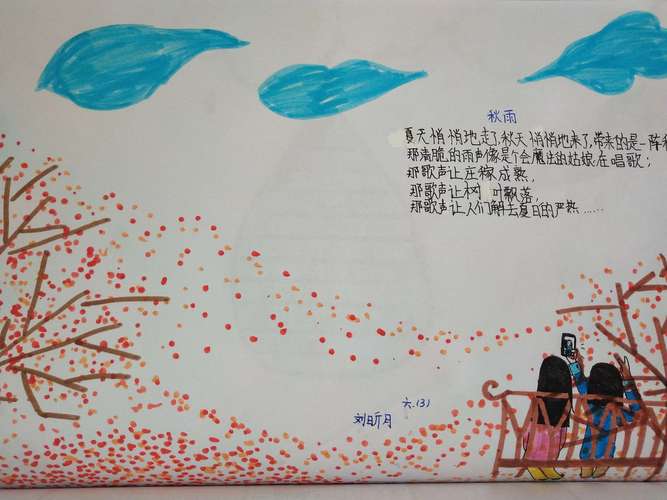 秋雨
夏天悄悄地走了,秋天悄悄地来了,带来的是一阵
那清脆的雨声像是个会魔法的姑娘在唱歌;
那歌声让庄稼成熟,
那歌声让树叶飘落,
那歌声让人们解去夏日的严热……
六.(3)
刘昕月